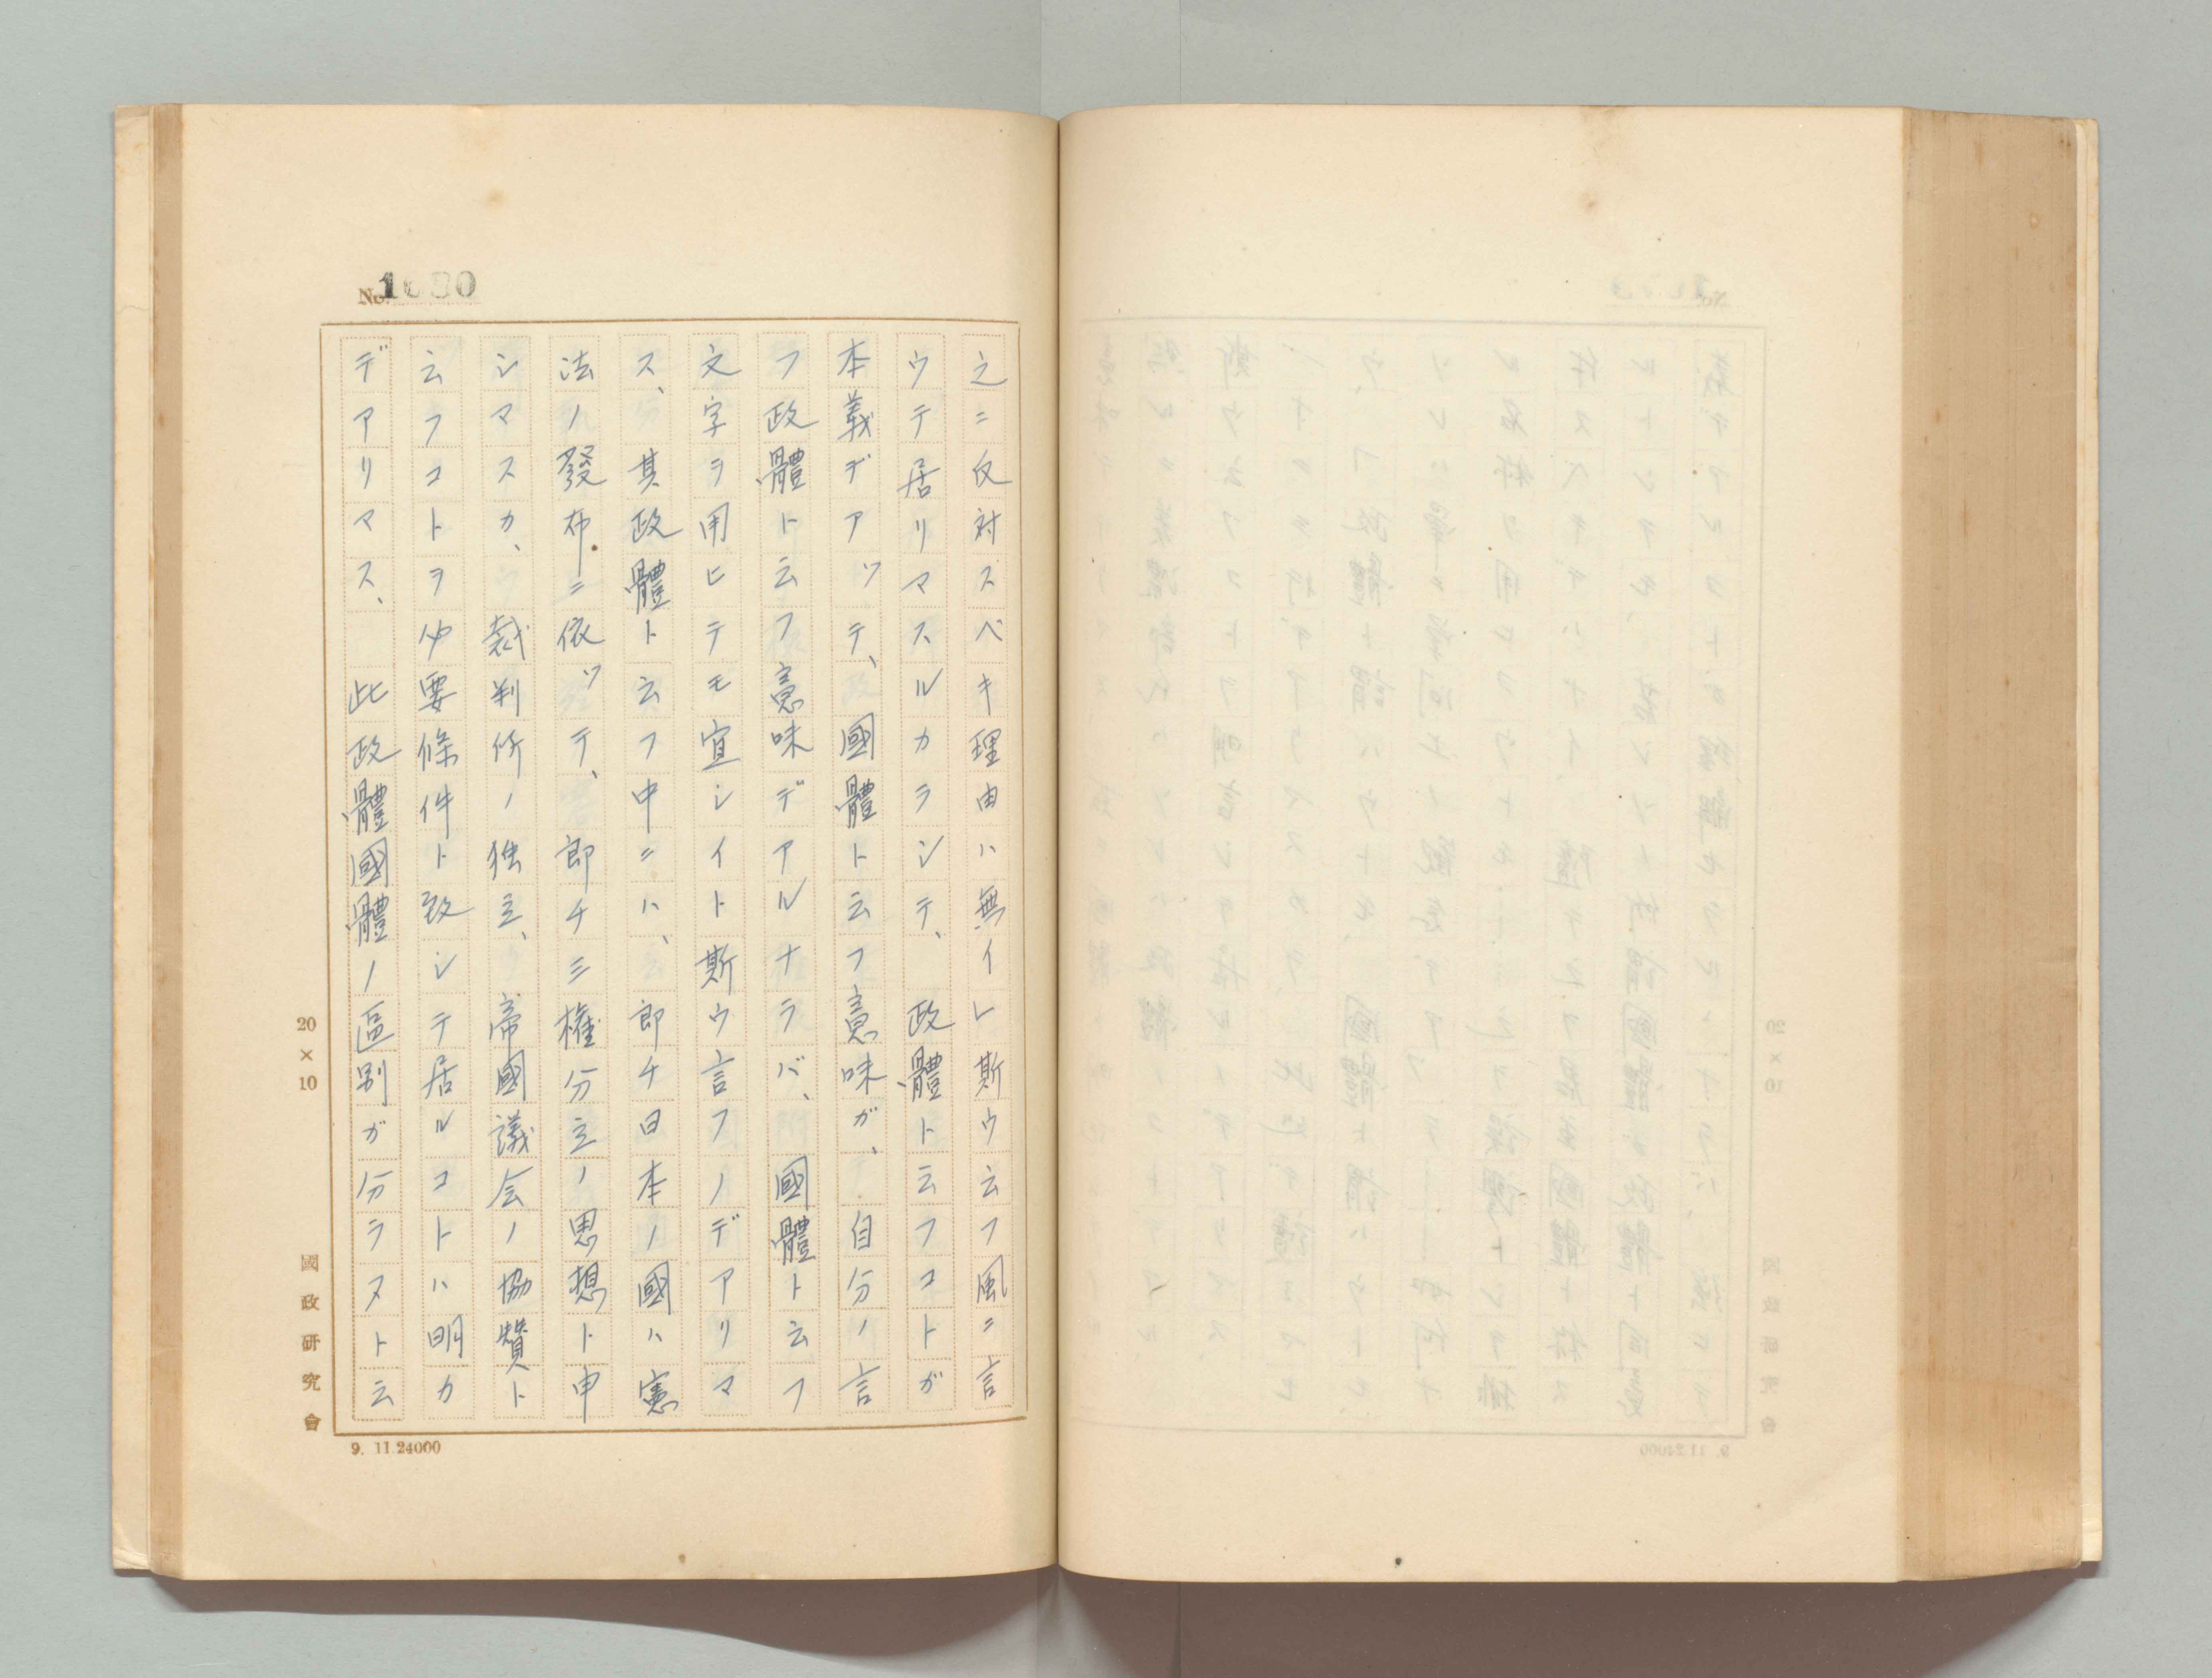 No. 1080
之ニ反対スベキ理由ハ無イレ斯ウ云フ風ニ言
ウテ居リマスルカラシテ、政體ト云フコトガ
本義デアツテ、國體ト云フ意味ガ、自分ノ言
フ政體ト云フ意味デアルナラバ、國體ト云フ
文字ヲ用ヒテモ宜シイト斯ウ言フノデアリマ
ス、其政體ト云フ中ニハ、郎チ日本ノ國ハ憲
法ノ發布ニ依ツテ、郎チ三権分立ノ思想ト申
シマスカ、裁判所ノ独立、帝國議会ノ協賛ト
云フコトヲ必要條件ト致シテ居ルコトハ明カ
デアリマス、此政體國體ノ區別ガ分ラヌト云
20×10
國政研究會
9. 11.24000